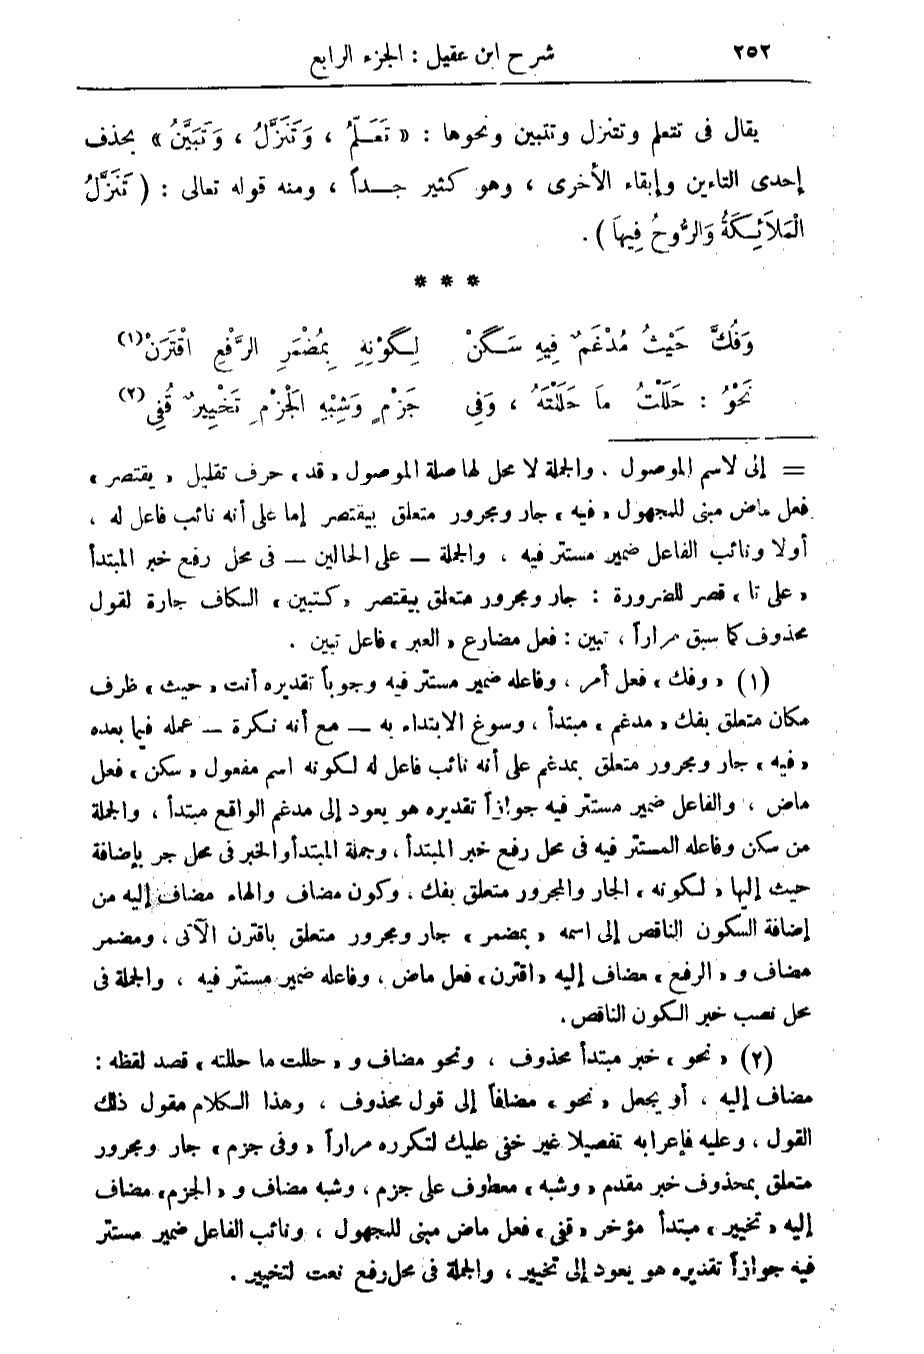 ٢٥٢ شرح ابن عقيل : الجزء الرابع
يقال فى تتعلم وتتنزل وتتبين ونحوها : « تَعَلَّمُ ، وَتَنَزَّلُ ، وَتَبَيَّنُ » بحذف
إحدى التاءين وإبقاء الأخرى ، وهو كثير جــداً ، ومنه قوله تعالى : ( تَنَزَّلُ
الْمَلاَئِكَةُ وَالرُّوحُ فِيهَا ) .
* * *
وَفُكَّ حَيْثُ مُدْغَمٌ فِيهِ سَكَنْ لِكَوْنِهِ بِمُضْمَرِ الرَّفْعِ اقْتَرَنْ (١)
نَحْوُ : حَلَلْتُ مَا حَلَلْتَهُ ، وَفِى جَزْمٍ وَشِبْهِ الْجَزْمِ تَخْيِيرٌ قُفِى (٢)
= إلى لاسم الموصول ، والجملة لا محل لها صلة الموصول « قد » حرف تقليل « يقتصر »
فعل ماض مبنى للمجهول « فيه » جار ومجرور متعلق بيقتصر إما على أنه نائب فاعل له ،
أولا ونائب الفاعل ضمير مستتر فيه ، والجملة — على الحالين — فى محل رفع خبر المبتدأ
« على تا » قصر للضرورة : جار ومجرور متعلق بيقتصر « كتبين » الكاف جارة لقول
محذوف كما سبق مراراً ، تبين : فعل مضارع « العبر » فاعل تبين .
(١) « وفك » فعل أمر ، وفاعله ضمير مستتر فيه وجوباً تقديره أنت « حيث » ظرف
مكان متعلق بفك « مدغم » مبتدأ ، وسوغ الابتداء به — مع أنه نكرة — عمله فيما بعده
« فيه » جار ومجرور متعلق بمدغم على أنه نائب فاعل له لكونه اسم مفعول « سكن » فعل
ماض ، والفاعل ضمير مستتر فيه جوازاً تقديره هو يعود إلى مدغم الواقع مبتدأ ، والجملة
من سكن وفاعله المستتر فيه فى محل رفع خبر المبتدأ ، وجملة المبتدأ والخبر فى محل جر بإضافة
حيث إليها « لكونه » الجار والمجرور متعلق بفك ، وكون مضاف والهاء مضاف إليه من
إضافة السكون الناقص إلى اسمه « بمضمر » جار ومجرور متعلق باقترن الآتى ، ومضمر
مضاف و « الرفع » مضاف إليه « اقترن » فعل ماض ، وفاعله ضمير مستتر فيه ، والجملة فى
محل نصب خبر الكون الناقص .
(٢) « نحو » خبر مبتدأ محذوف ، ونحو مضاف و « حللت ما حللته » قصد لفظه :
مضاف إليه ، أو يجعل « نحو » مضافاً إلى قول محذوف ، وهذا الكلام مقول ذلك
القول ، وعليه فإعرابه تفصيلا غير خفى عليك لتكرره مراراً « وفى جزم » جار ومجرور
متعلق بمحذوف خبر مقدم « وشبه » معطوف على جزم ، وشبه مضاف و « الجزم » مضاف
إليه « تخيير » مبتدأ مؤخر « قفى » فعل ماض مبنى للمجهول ، ونائب الفاعل ضمير مستتر
فيه جوازاً تقديره هو يعود إلى تخيير ، والجملة فى محل رفع نعت لتخيير .